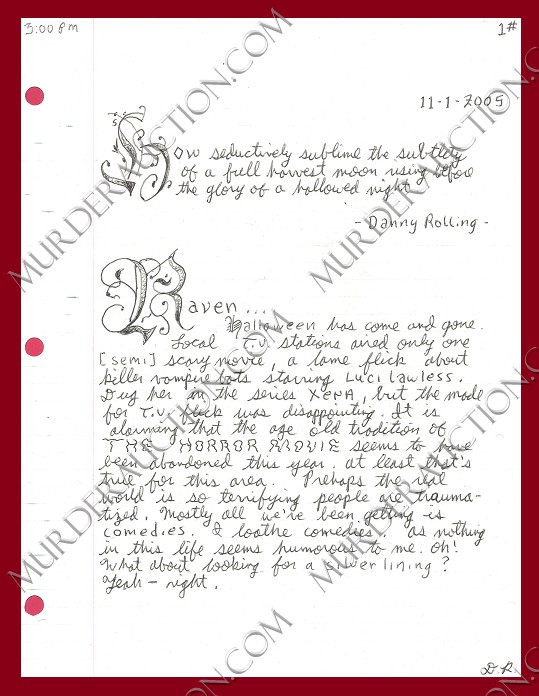 3:00 pm
1#
11-1-2005
How seductively sublime the subtlety
of a full harvest moon rising before
the glory of a hallowed night
- Danny Rolling -
Raven...
Halloween has come and gone.
Local T.V. stations aired only one
[semi] scary movie, a lame flick about
killer vampire bats starring Luci Lawless.
Dug her in the series XENA, but the made
for T.V. flick was disappointing. It is
alarming that the age old tradition of
THE HORROR MOVIE seems to have
been abandoned this year, at least that's
true for this area. Prehaps the real
world is so terrifying people are trauma-
tized. Mostly all we've been getting is
comedies. I loathe comedies. as nothing
in this life seems humorous to me. oh!
What about looking for a silver lining?
Yeah - right.
D.R.
MURDERAUCTION.COM